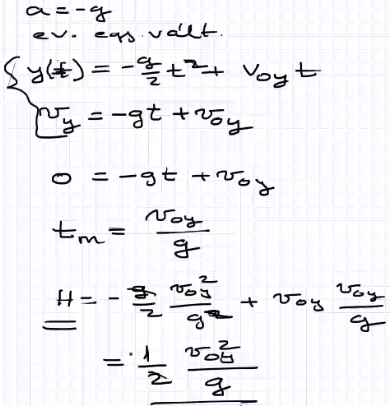 a = -g
ev. egs. vált.
y(t) = -g/2 t² + v₀y t
vy = -gt + v₀y
0 = -gt + v₀y
tm = v₀y/g
H = -g/2 v₀y²/g² + v₀y v₀y/g
= 1/2 v₀y²/g